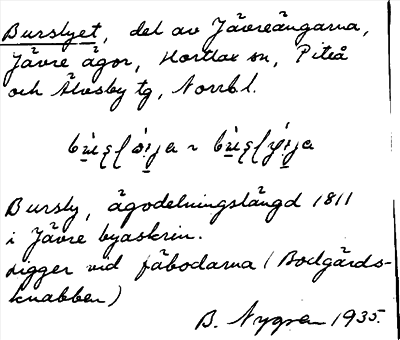 Burslyet, del av Jävreängarna,
Jävre ägor, Hortlax sn, Piteå
och Älvsby tg, Norrb l.
Bursly, ägodelningslängd 1811
i Jävre byaskrin.
Ligger vid fäbodarna (Bodgårds-
knabben)
B. Nygren 1935.